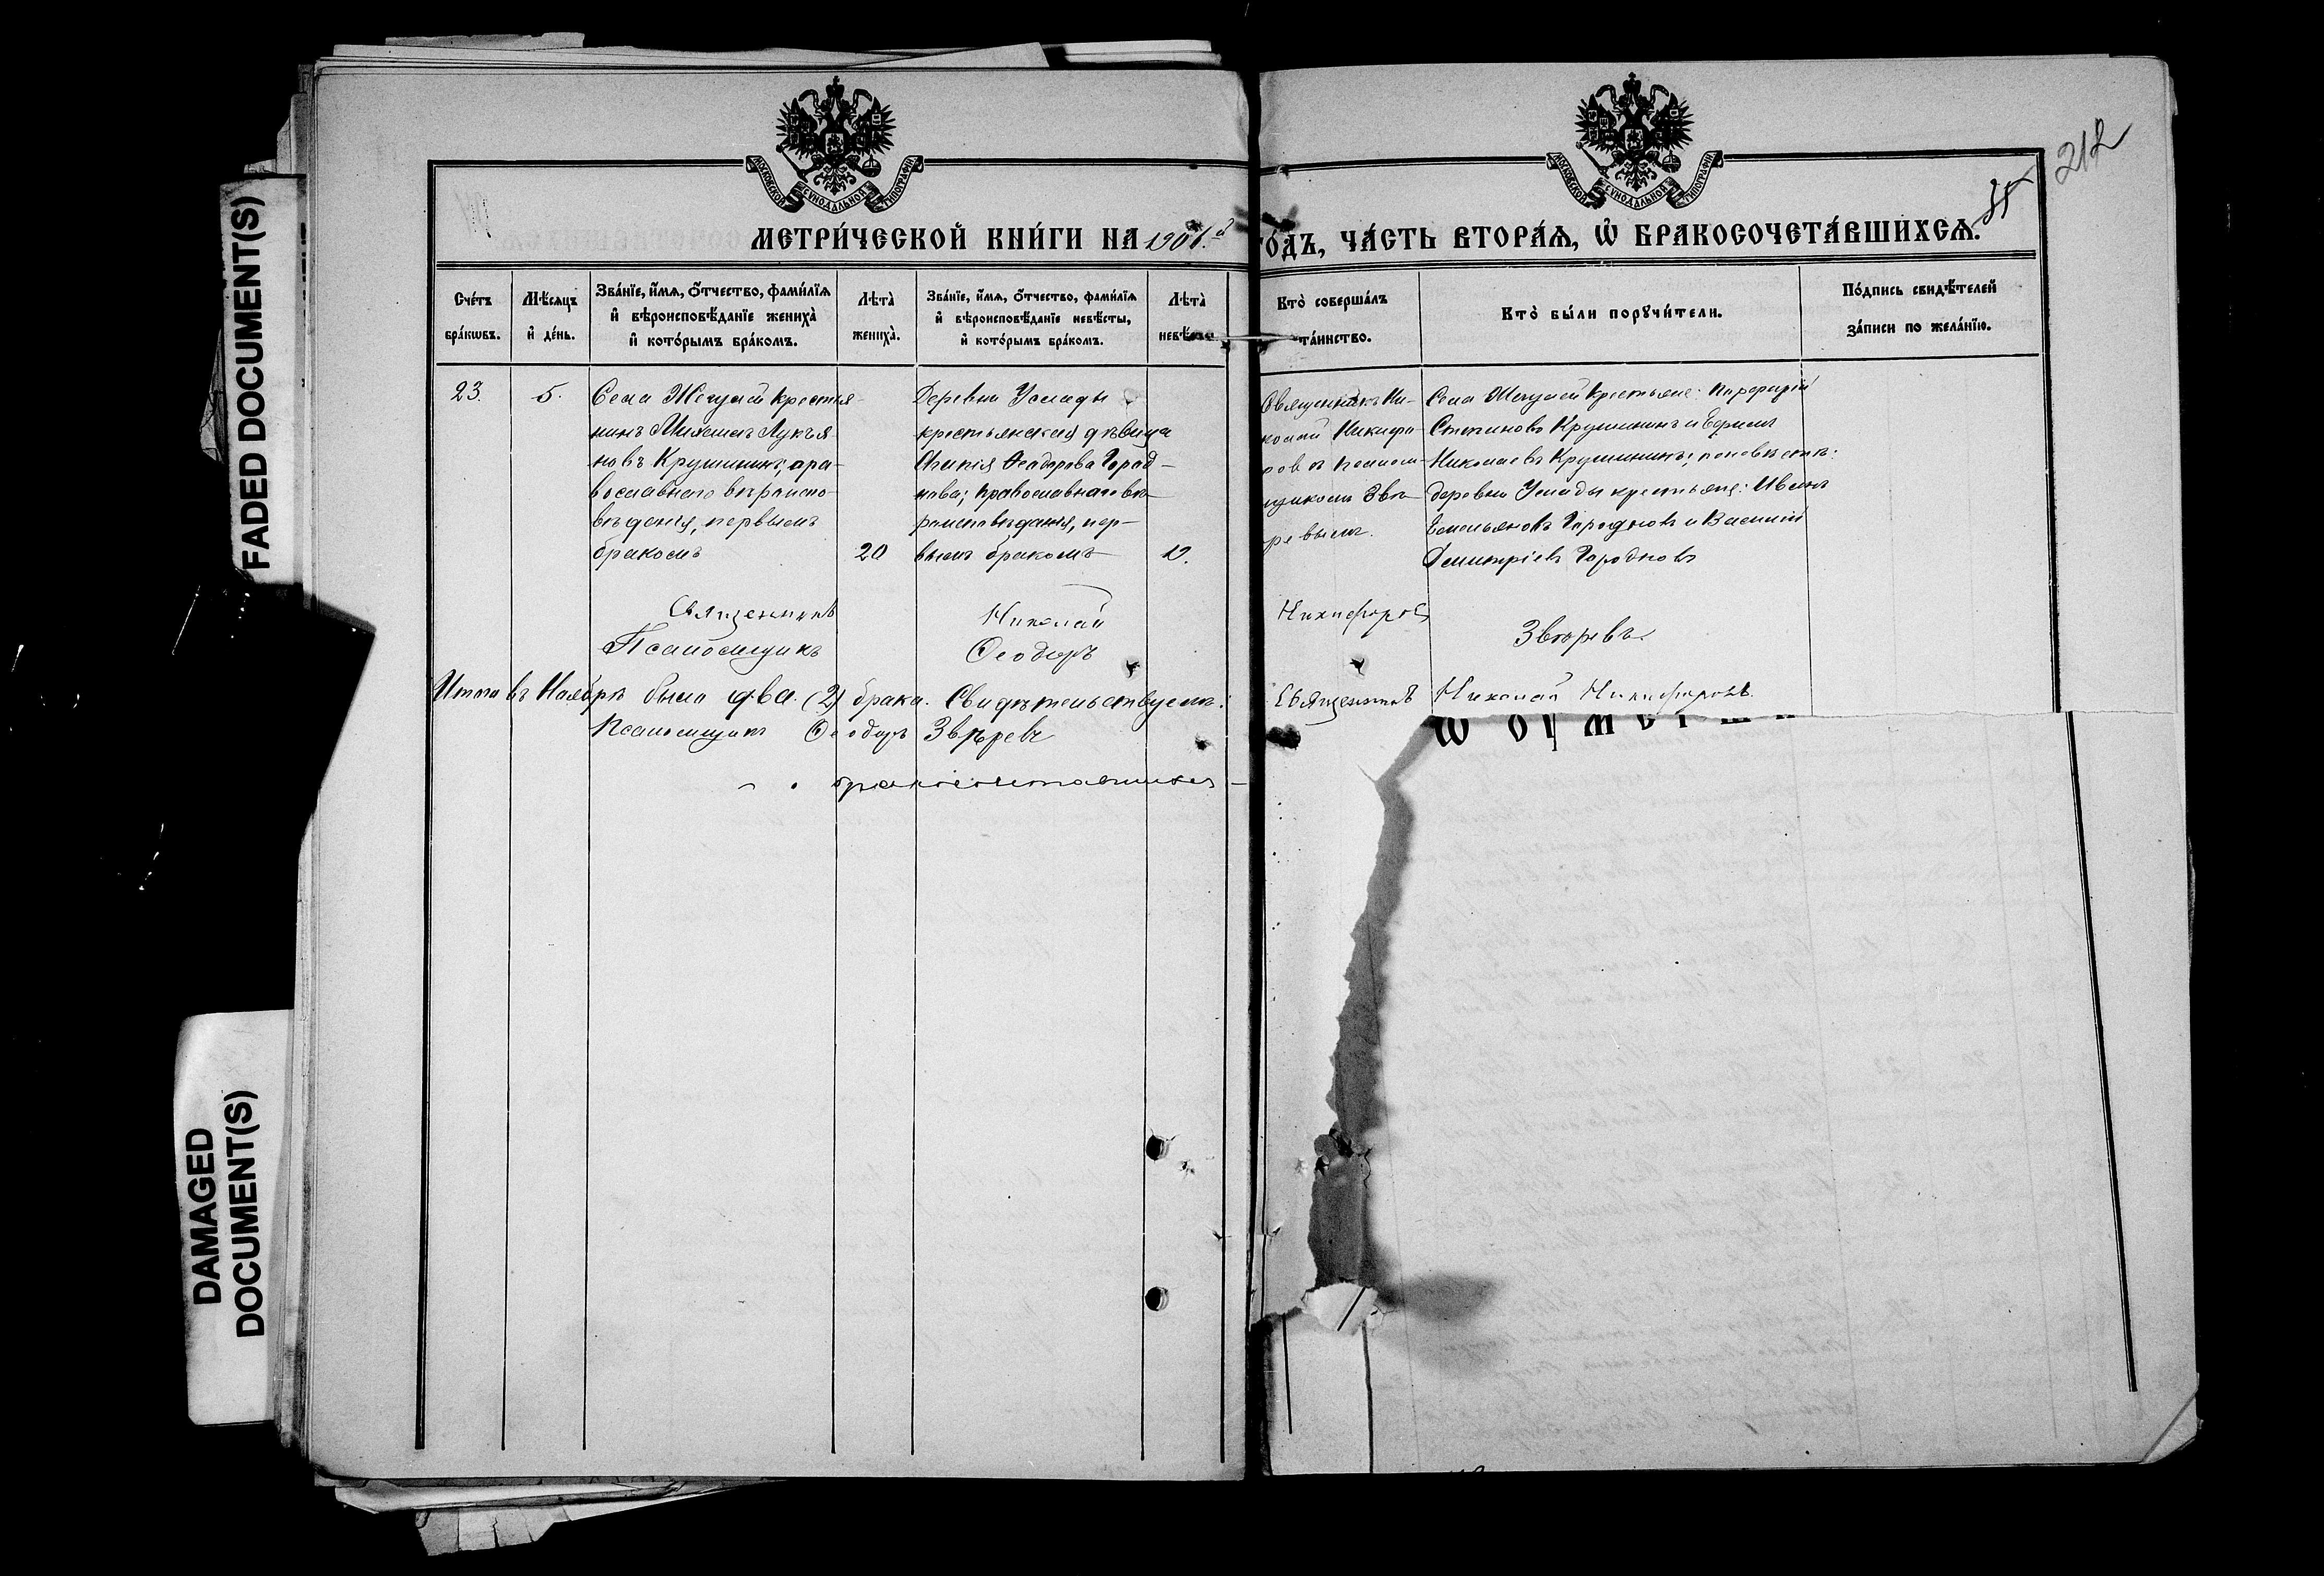 FADED DOCUMENT(S)
DAMAGED
DOCUMENT(S)
МОСКОВСКОЙ СѴНОДАЛЬНОЙ ТИПОГРАФІИ
МОСКОВСКОЙ СѴНОДАЛЬНОЙ ТИПОГРАФІИ
212
МЕТРИ́ЧЕСКОЙ КНИ́ГИ НА 1901-й
ГОДЪ, ЧА́СТЬ ВТОРА́Ѧ, Ѡ҆ БРАКОСОЧЕТА́ВШИХСѦ.
Сче́тъ бра́кѡвъ.
Мѣ́сяцъ и҆ де́нь.
Зва́нїе, и҆́мѧ, ѻ҆́тчество, фами́лїѧ и҆ вѣроисповѣ́данїе жениха̀ и҆ кото́рымъ бра́комъ.
Лѣта̀ жениха̀.
Зва́нїе, и҆́мѧ, ѻ҆́тчество, фами́лїѧ и҆ вѣроисповѣ́данїе невѣ́сты, и҆ кото́рымъ бра́комъ.
Лѣта̀
Кто̀ соверша́лъ та́инство.
Кто̀ бы́ли порꙋчи́тели.
По́дпись свидѣ́телей за́писи по жела́нїю.
23.
5.
Села крестья-
нинъ Лукья-
новъ Крушининъ, пра-
вославнаго вѣроиспо-
вѣданія, первымъ
бракомъ
20
Деревни Усладъ
крестьянская дѣвица
Ѳеодорова Город-
нова; православнаго вѣ-
роисповѣданія, пер-
вымъ бракомъ
19.
Священникъ Ни-
колай Никифо-
ровъ псалом-
щикомъ Звѣ-
ревымъ.
Села крестьяне:
Крушининъ и Ефимъ
Николаевъ Крушининъ; по невѣстѣ:
деревни Услады крестьяне: Иванъ
Емельяновъ Городновъ и Василій
Димитріевъ Городновъ
Священникъ Николай Никифоровъ
Псаломщикъ Ѳеодоръ Звѣревъ
Итого въ Ноябрѣ было два (2) брака. Свидѣтельствуемъ: Священникъ Николай Никифоровъ.
Псаломщикъ Ѳеодоръ Звѣревъ
бракосочетавшихся